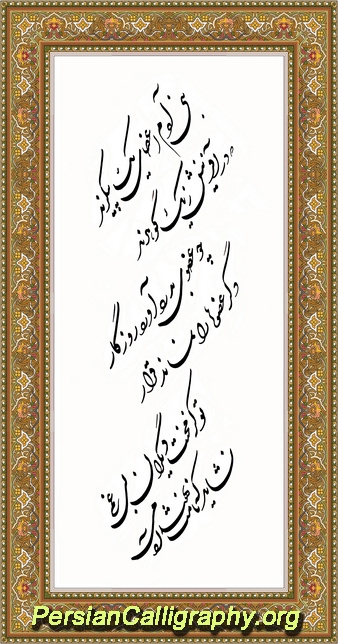 بنی آدم اعضای یک پیکرند
که در آفرینش ز یک گوهرند
چو عضوی بدرد آورد روزگار
دگر عضوها را نماند قرار
تو کز محنت دیگران بی غمی
نشاید که نامت نهند آدمی
PersianCalligraphy.org